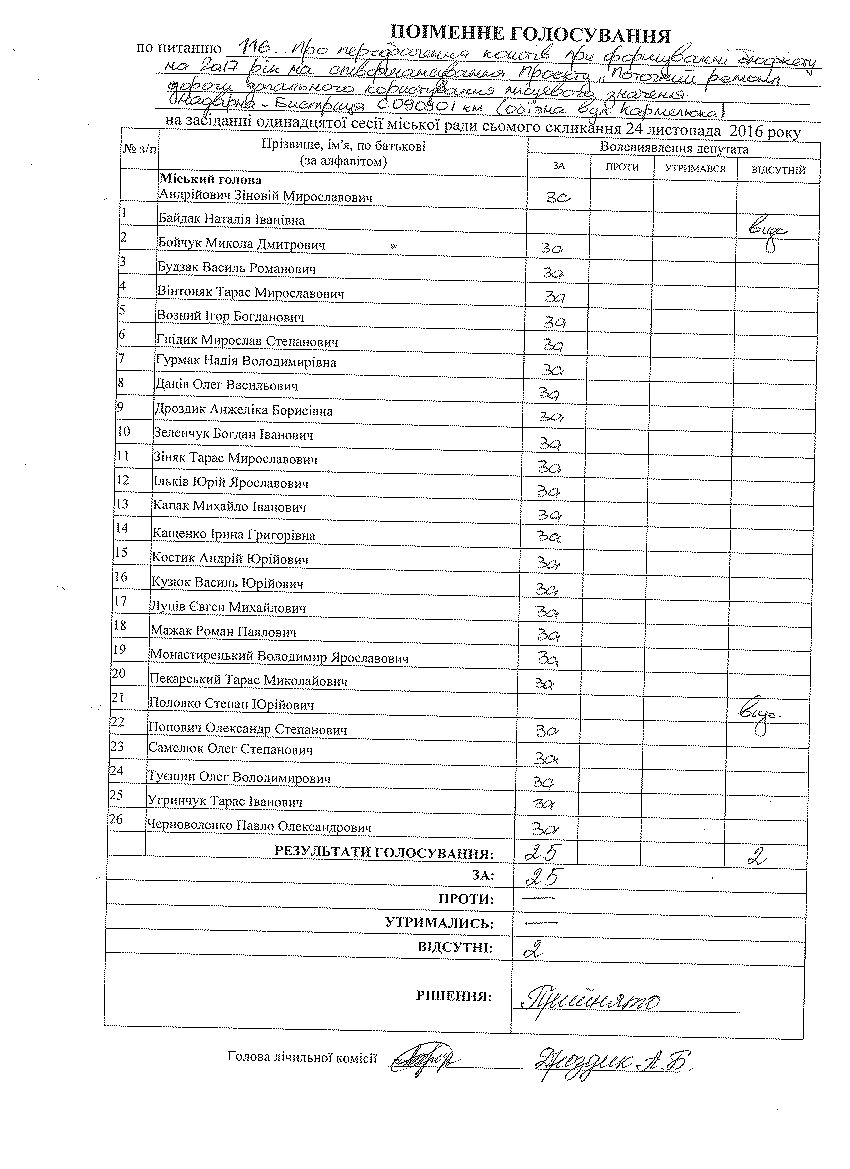 ПОІМЕННЕ ГОЛОСУВАННЯ
по питанню 116. Про передбачення коштів при формуванні бюджету
на 2017 рік на співфінансування Проекту „Поточний ремонт
дороги загального користування місцевого значення
Надвірна - Бистриця С 090901 км (об'їзна вул. Кармелюка)
на засіданні одинадцятої сесії міської ради сьомого скликання 24 листопада 2016 року
№ з/п Прізвище, ім'я, по батькові (за алфавітом) Волевиявлення депутата
ЗА ПРОТИ УТРИМАВСЯ ВІДСУТНІЙ
Міський голова
Андрійович Зіновій Мирославович за
1 Байдак Наталія Іванівна відс
2 Бойчук Микола Дмитрович за
3 Будзак Василь Романович за
4 Вінтоняк Тарас Мирославович за
5 Возний Ігор Богданович за
6 Гнідик Мирослав Степанович за
7 Гурмак Надія Володимирівна за
8 Данів Олег Васильович за
9 Дроздик Анжеліка Борисівна за
10 Зеленчук Богдан Іванович за
11 Зіняк Тарас Мирославович за
12 Ільків Юрій Ярославович за
13 Капак Михайло Іванович за
14 Кащенко Ірина Григорівна за
15 Костик Андрій Юрійович за
16 Кузюк Василь Юрійович за
17 Луців Євген Михайлович за
18 Мажак Роман Павлович за
19 Монастирецький Володимир Ярославович за
20 Пекарський Тарас Миколайович за
21 Половко Степан Юрійович відс.
22 Попович Олександр Степанович за
23 Самелюк Олег Степанович за
24 Туєшин Олег Володимирович за
25 Угринчук Тарас Іванович за
26 Черноволенко Павло Олександрович за
РЕЗУЛЬТАТИ ГОЛОСУВАННЯ: 25 2
ЗА: 25
ПРОТИ: —
УТРИМАЛИСЬ: —
ВІДСУТНІ: 2
РІШЕННЯ: Прийнято
Голова лічильної комісії Дроздик А.Б.